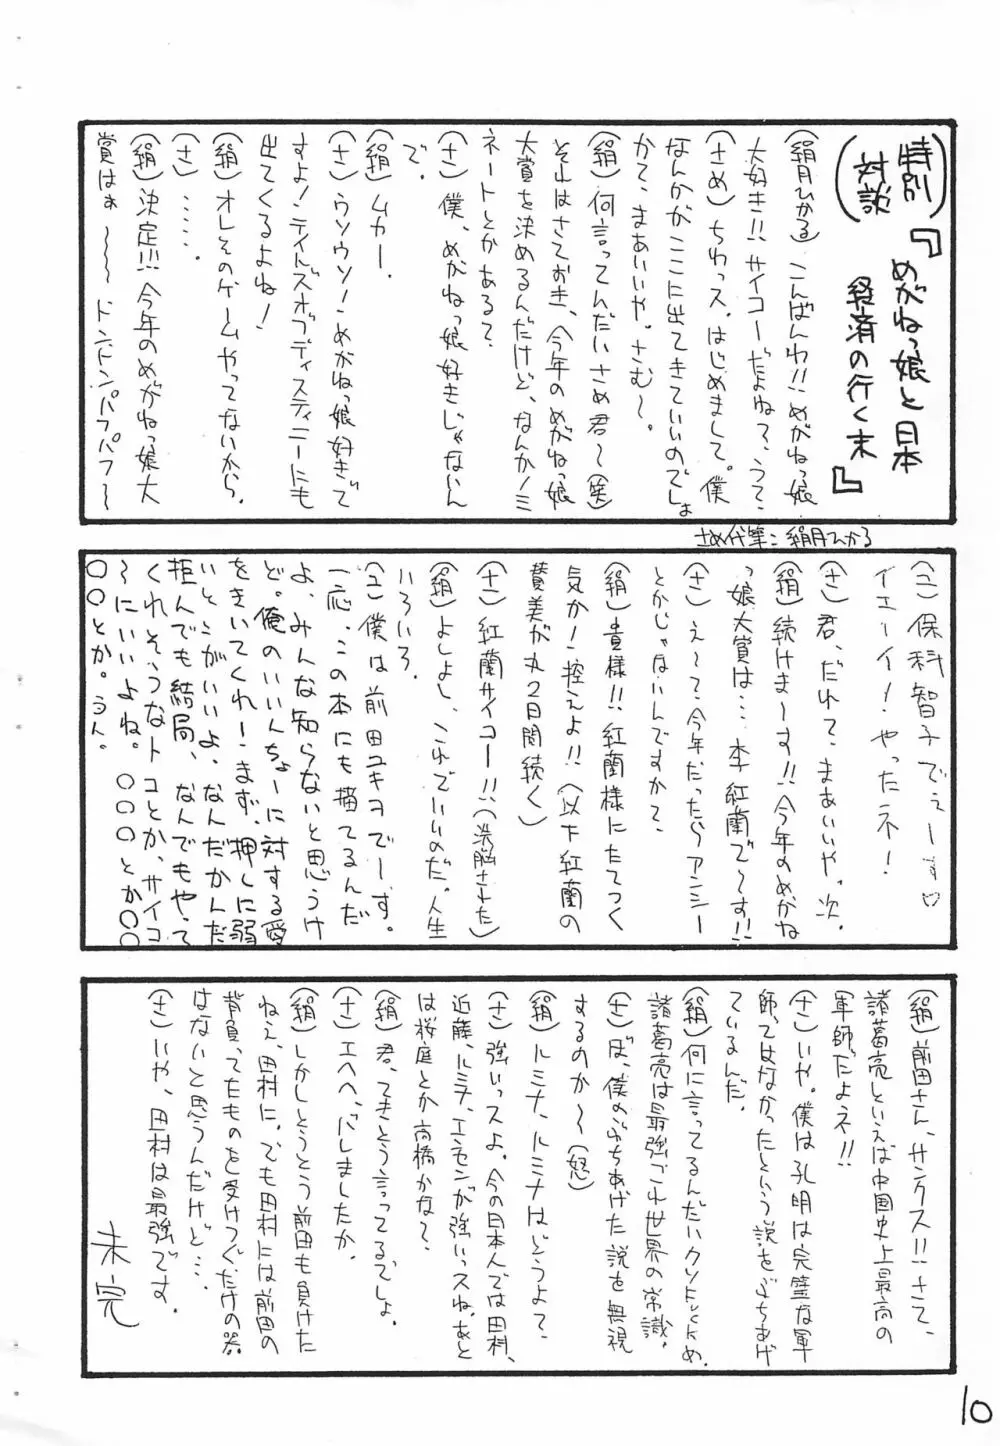 (特別対談)
『めがねっ娘と日本
経済の行く末』
(絹月ひかる) こんばんわ!!めがねっ娘
大好き!!サイコーだよねって、うって
(さめ)ちわっス。はじめまして。僕
なんかがここに出てきていいのでしょ
かて、まあいいや。さむ〜。
(絹) 何言ってんだい さめ君〜(笑)
それはさておき、今年のめがねっ娘
大賞を決めるんだけど、なんかノミ
ネートとかある?
(さ) 僕、めがねっ娘好きじゃないん
で。
(絹) ムカー。
(さ) ウソウソ!めがねっ娘好きで
すよ!テイルズオブディスティニーにも
出てくるよね!
(絹) オレそのゲームやってないから。
(さ) ……。
(絹) 決定!!!今年のめがねっ娘大
賞はぁ 〜〜〜ドンドンパフパフ〜
さめ代筆:絹月ひかる
(ユ) 保科智子でぇーす♡
イエーイ!やったネ!
(さ) 君、だれて、まあいいや。次
(絹) 続けまーす!!今年のめがね
っ娘大賞は…李紅蘭で〜す!!
(さ) え〜て、今年だったらアンシー
とかじゃないんですかて、
(絹) 貴様!!紅蘭様にたてつく
気かー控えよ!!(以下紅蘭の
賛美が丸2日間続く)
(さ) 紅蘭サイコー!!(洗脳された)
(絹) よしよし、これでいいのだ。人生
いろいろ。
(ユ) 僕は前田ユキヲでーす。
一応、この本にも描てるんだ
よ、みんな知らないと思うけ
ど。俺のいいんちょーに対する愛
をきいてくれーまず、押しに弱
いとこがいいよ、なんだかんだ
拒んでも結局、なんでもやって
くれそうなトコとか、サイコ
〜にいいよね。〇〇〇とか〇〇
〇〇とか。うん。
(絹) 前田さん、サンクス!!さて、
諸葛亮といえば中国史上最高の
軍師だよネ!!
(さ) いや。僕は孔明は完璧な軍
師ってはなかったという説をぶちあげ
ているんだ。
(絹) 何に言ってるんだいクソFuckめ。
諸葛亮は最強これ世界の常識。
(さ) ぼ、僕のぶちあげた説を無視
するのか〜(怒)
(絹) ルミナ、ルミナはどうよて、
(さ) 強いっスよ。今の日本人では田村、
近藤、ルミナ、エンセンが強いっスね、あと
は桜庭とか高橋かな?
(絹) 君、てきとう言ってるでしょ。
(さ) エヘヘ、バレましたか。
(絹) しかしとうとう前田も負けた
ねえ、田村に。でも田村には前田の
背負ってたものを受けつぐだけの器
はないと思うんだけど…。
(さ) いや、田村は最強です。
未完
10